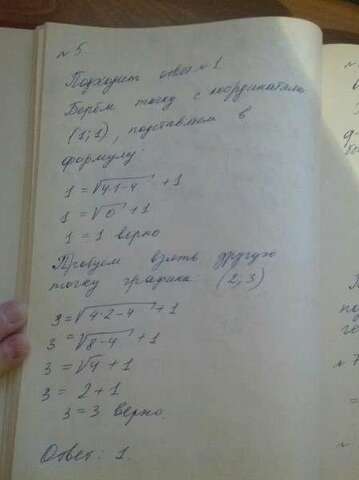 № 5.
Подходит ответ № 1
Берём точку с координатами
(1;1), подставляем в
формулу:
1 = √4·1-4 + 1
1 = √0 + 1
1 = 1 верно
Пробуем взять другую
точку графика (2;3)
3 = √4·2-4 + 1
3 = √8-4 + 1
3 = √4 + 1
3 = 2+1
3 = 3 верно.
Ответ: 1.
№ 7